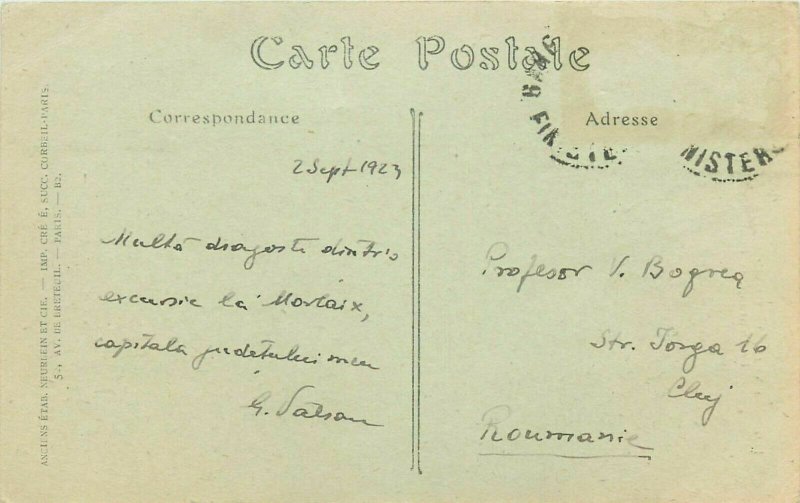 Carte Postale
Correspondance
Adresse
2 Sept 1923
Multă dragoste dintr'o
excursie la Morlaix,
capitala județului meu
G.
Profesor V. Bogrea
Str. Iorga 16
Cluj
Roumanie
FINISTERE
NISTERE
ANCIENS ÉTAB. NEURDEIN ET CIE. — IMP. CRÉTÉ, SUCC. CORBEIL-PARIS.
52, AV. DE BRETEUIL. — PARIS. — B2.